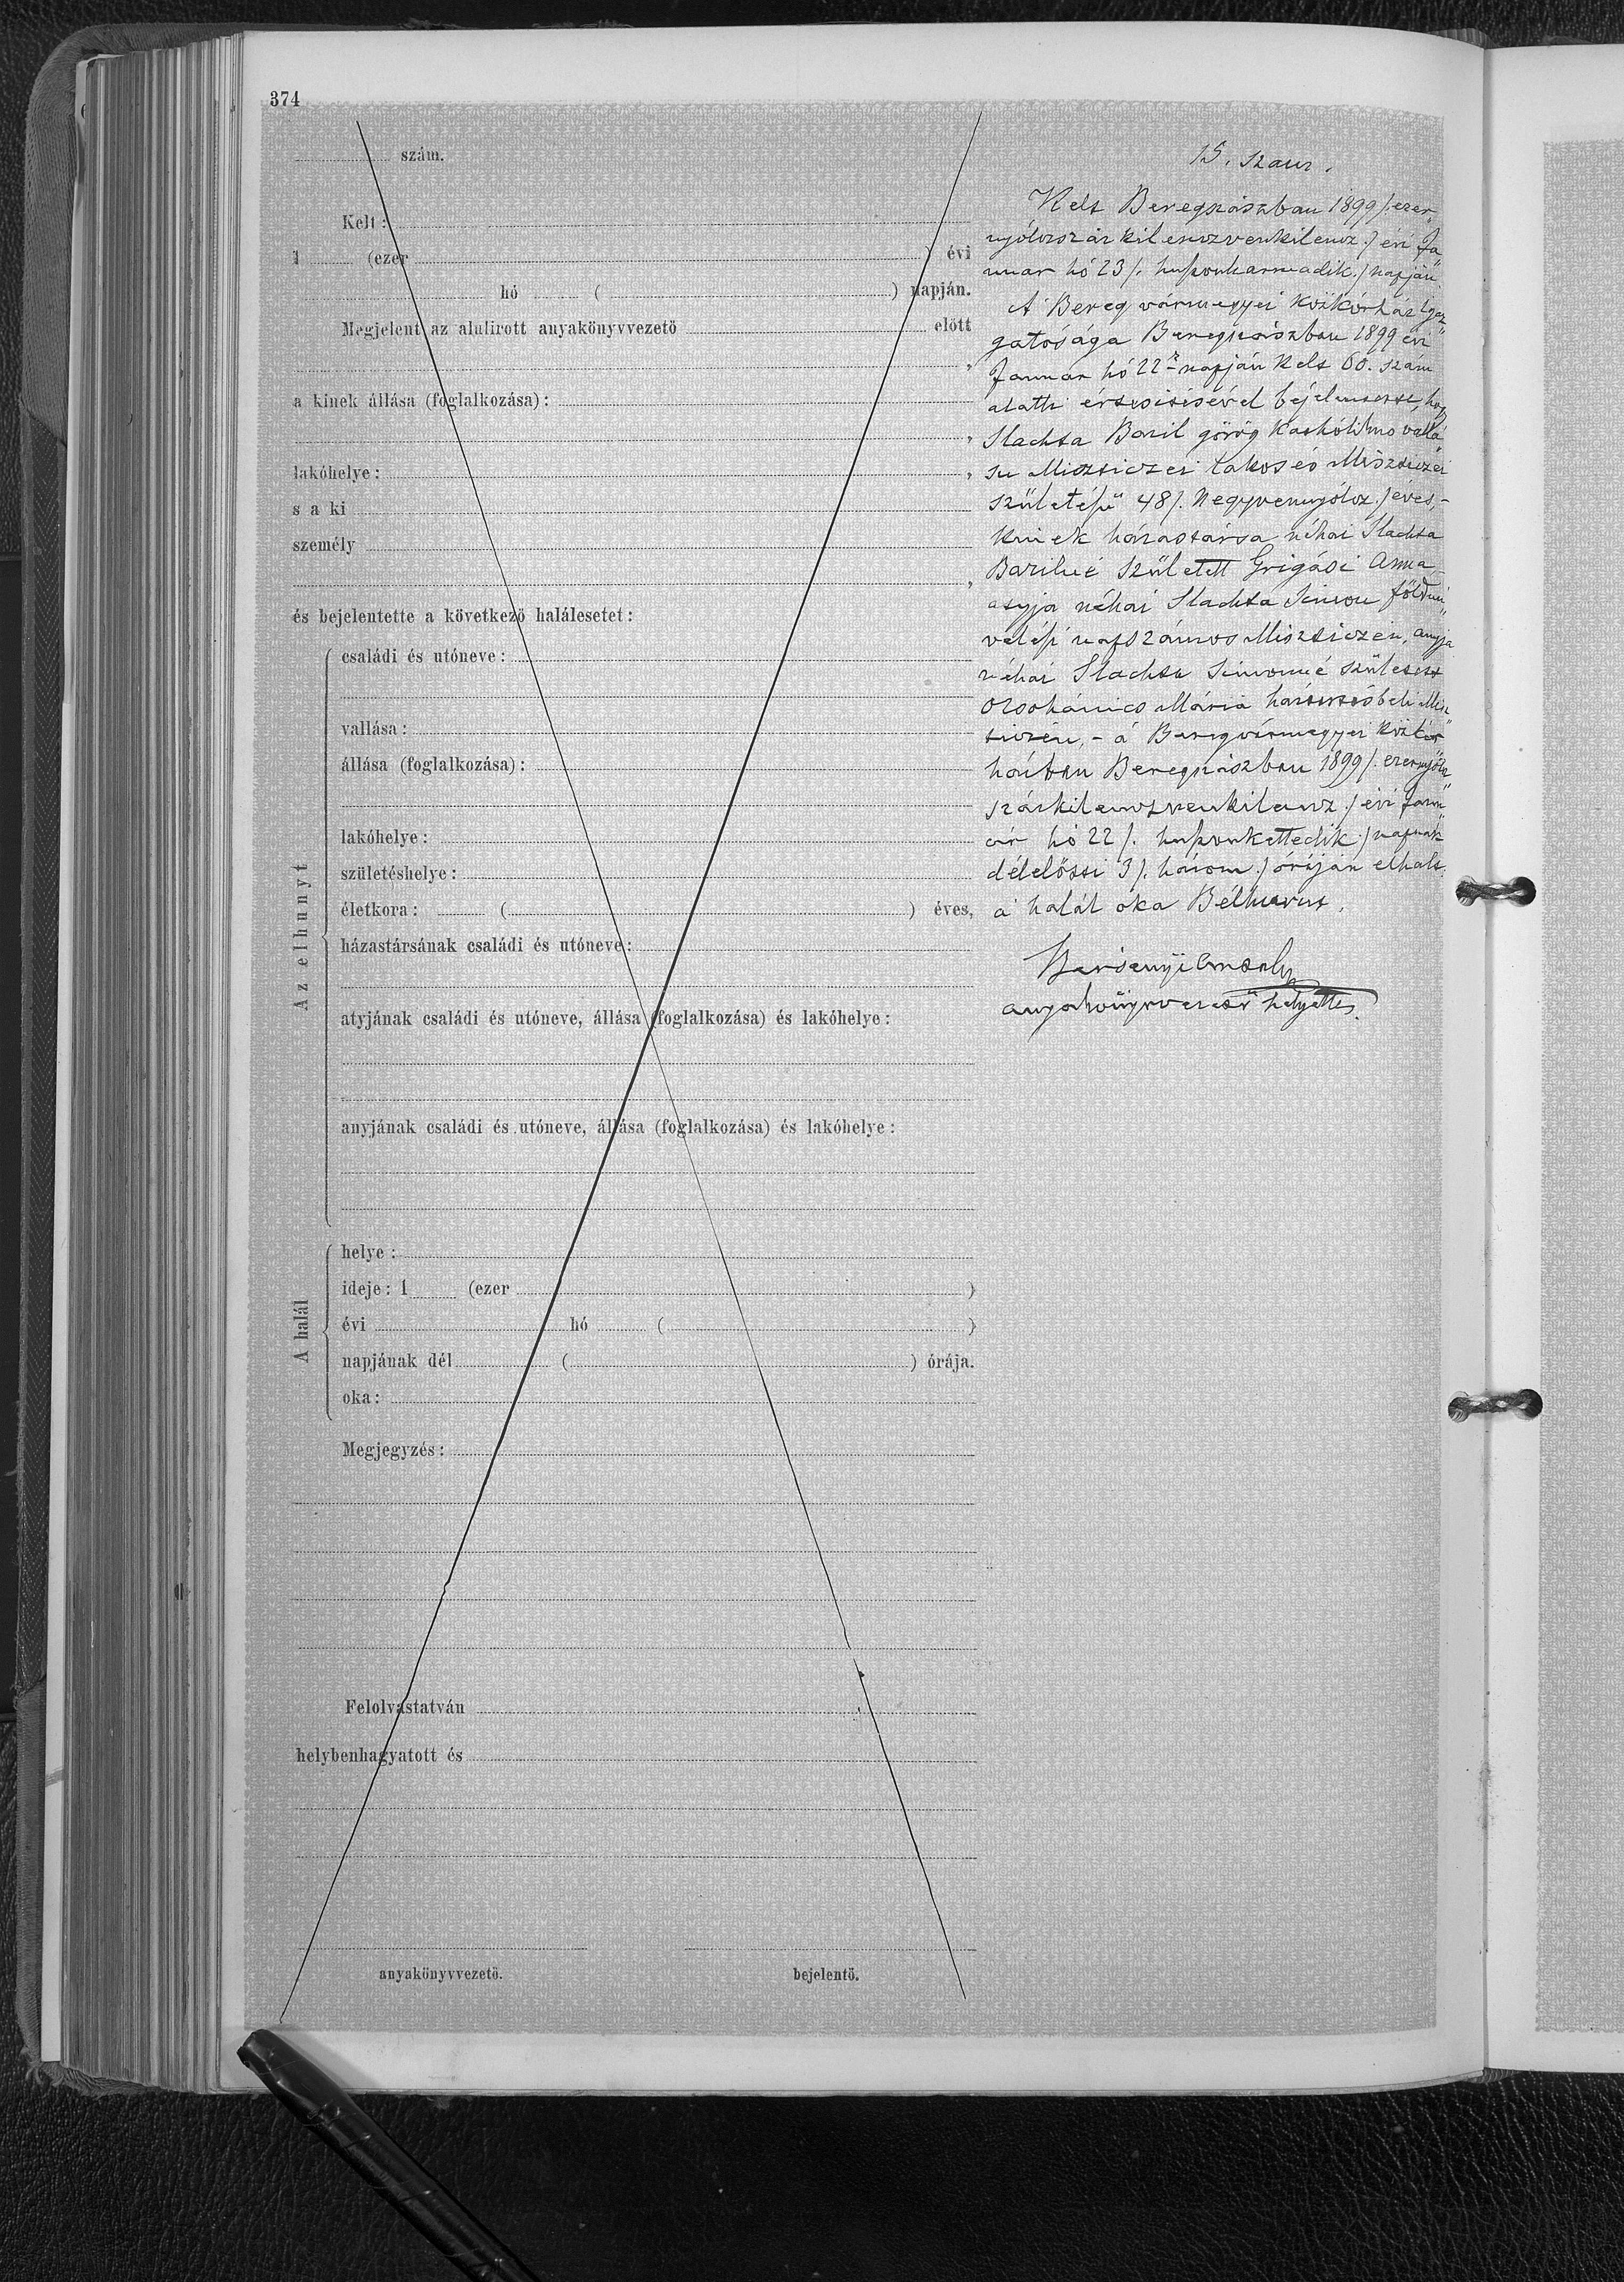 374
szám.
Kelt:
1 (ezer ) évi
hó ( ) napján.
Megjelent az alulirott anyakönyvvezető előtt
,
a kinek állása (foglalkozása):
,
lakóhelye: ,
s a ki
személy
,
és bejelentette a következő halálesetet:
Az elhunyt
családi és utóneve:
vallása:
állása (foglalkozása):
lakóhelye:
születéshelye:
életkora: ( ) éves,
házastársának családi és utóneve:
atyjának családi és utóneve, állása (foglalkozása) és lakóhelye:
anyjának családi és utóneve, állása (foglalkozása) és lakóhelye:
A halál
helye:
ideje: 1 (ezer )
évi hó ( )
napjának dél ( ) órája.
oka:
Megjegyzés:
Felolvastatván
helybenhagyatott és
anyakönyvvezető. bejelentő.
15. szám.
Kelt Beregszászban 1899 /. ezer„
nyólczszáz kilenczvenkilencz ./ évi Ja„
nuár hó 23 /. huszonharmadik ./ napján.
A Bereg vármegyei közkórház Igaz„
gatósága Beregszászban 1899 évi
Január hó 22 napján kelt 60. szám
alatti értesitésével bejelentette, hogy
Stachta Bazil görög kathólikus vallá„
su Miszticzei lakos és Miszticzei
születésű 48 /. negyvennyólcz ./ éves,-
kinek házastársa néhai Stachta
Bazilné született Grigási Anna,-
atyja néhai Stachta Simon földmi„
velési napszámos Miszticzén, anyja
néhai Stachta Simonné született
Mária háztartásbeli Misz„
ticzén,- a Beregvármegyei közkór„
házban Beregszászban 1899 /. ezernyólcz„
százkilenczvenkilencz ./ évi Janu„
ár hó 22 /. huszonkettedik ./ napnak
délelőtti 3 /. három ./ óráján elhalt.
a halál oka Bélhurut.
anyakönyvvezető helyettes.